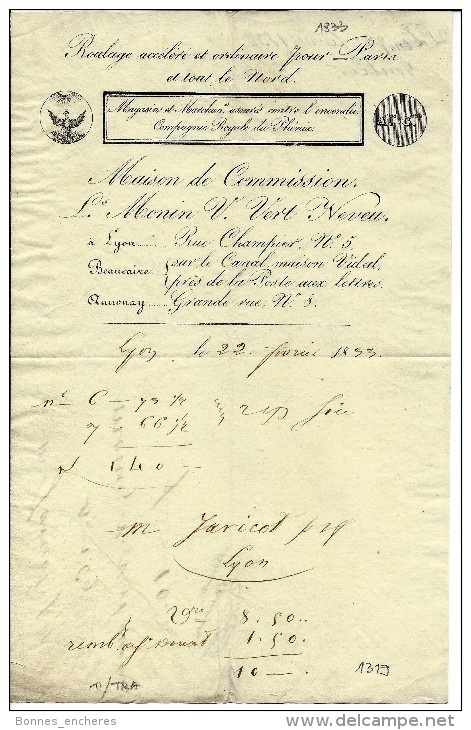 1833
Roulage accéléré et ordinaire pour Paris
et tout le Nord.
Magasins et Marchan.ses assurés contre l'incendie
Compagnie Royale du Phénix.
Maison de Commission.
L.s Monin V. Vert Neveu.
à Lyon Rue Champier, N.o 5.
Beaucaire sur le Canal, maison Vidal,
près de la Poste aux lettres.
Annonay Grande rue, N.o 8.
Lyon le 22 février 1833.
n.o 6 — 73 1/2
7 - 66 1/2
140 —
m Jaricot
Lyon
8.50
remb.t 1.50.
10 —
TI/TRA
1319
Bonnes_encheres
www.delcampe.net